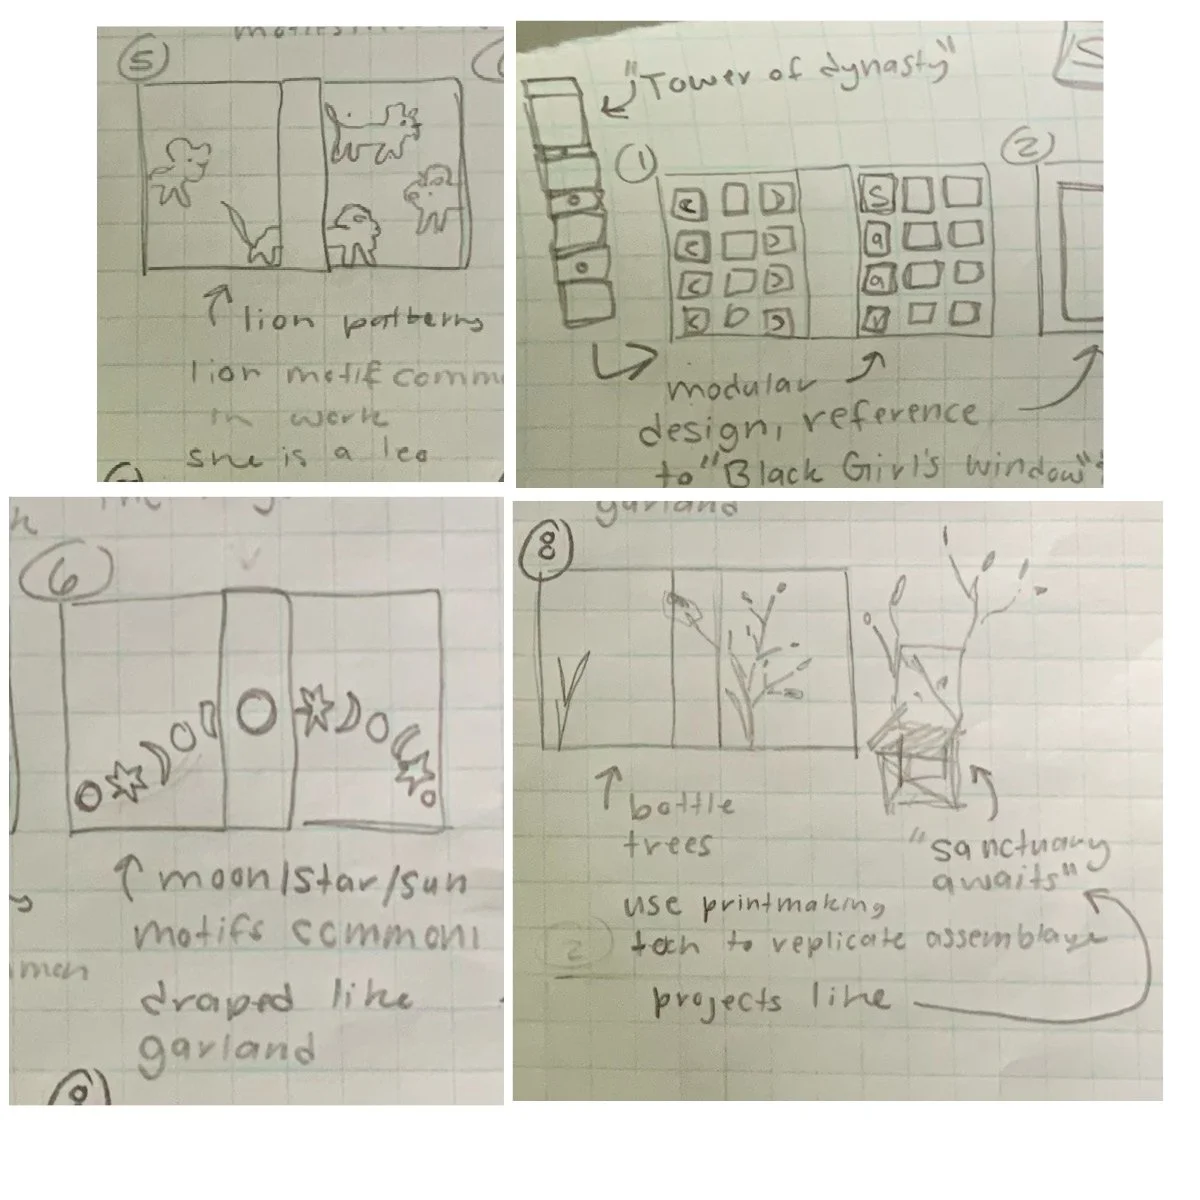 5
lion patterns
lion motif comm
in work
she is a leo
"Tower of dynasty"
1
2
S
a
a
modular
design, reference
to "Black Girl's window"
6
moon/star/sun
motifs common,
draped like
garland
garland
8
bottle
trees
"sanctuary
awaits"
use printmaking
2
tech to replicate assemblage
projects like